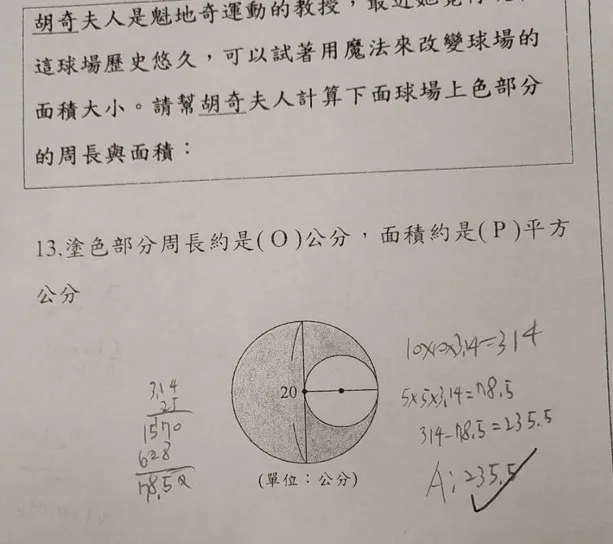 胡奇夫人是魁地奇運動的教授,最近她覺得
這球場歷史悠久,可以試著用魔法來改變球場的
面積大小。請幫胡奇夫人計算下面球場上色部分
的周長與面積:
13.塗色部分周長約是(O)公分,面積約是(P)平方
公分
20
(單位:公分)
3.14
25
1570
628
78.50
10×10×3.14=314
5×5×3.14=78.5
314-78.5=235.5
A:235.5